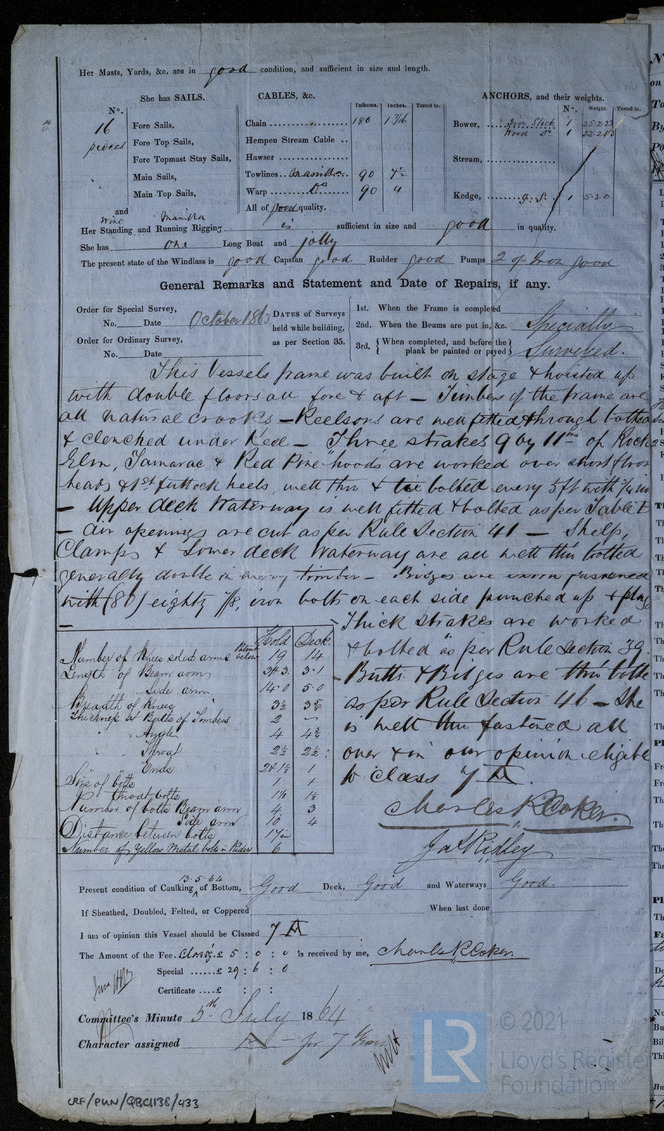 Her Masts, Yards, &c. are in good condition, and sufficient in size and length.
She has SAILS.
CABLES, &c.
ANCHORS, and their weights.
Nº.
Fathoms. Inches. Tested to.
Nº. Weight. Tested to.
16 pieces
Fore Sails,
Fore Top Sails,
Fore Topmast Stay Sails,
Main Sails,
Main Top Sails,
and
Chain 180 1 7/16
Hempen Stream Cable
Hawser
Towlines Manilla 90 7
Warp Do 90 4
All of good quality.
Bower, Iron Stock 1
Wood Do 1
Stream,
Kedge, 1 5.3.0
Wire Manilla
Her Standing and Running Rigging is sufficient in size and good in quality.
She has one Long Boat and jolly
The present state of the Windlass is good Capstan good Rudder good Pumps 2 of Iron good
General Remarks and Statement and Date of Repairs, if any.
Order for Special Survey, No. Date October 1863
Order for Ordinary Survey, No. Date
DATES of Surveys held while building, as per Section 35.
1st. When the Frame is completed
2nd. When the Beams are put in, &c. Specially
3rd, { When completed, and before the plank be painted or payed } Surveyed.
This Vessels frame was built on stage & hoisted up
with double floors all fore & aft – Timbers of the frame are
all natural crooks – Keelsons are well fitted & through bolted
& clenched under Keel – Three strakes 9 by 11 ins of Rock
Elm, Tamarac & Red Pine "hoods" are worked over short floor
heads & 1st futtock heels, well thro & bolted every 5 ft with
– Upper deck Waterway is well fitted & bolted as per Table E
– Air openings are cut as per Rule Section 41 – Shelfs,
Clamps & Lower deck Waterway are all well thro bolted
generally double in every timber – Bilges are fastened
with (80) eighty 7/8 iron bolts on each side punched up & plug
– Thick strakes are worked
& bolted as per Rule Section 39
– Butts & Bilges are thro bolted
as per Rule Section 46 – She
is well fastened all
over & in our opinion eligible
to class 7 A
Charles R Coker.
Jas Ridley
Hold Deck
Number of Knees 19 14
Length of Beam arm 3.1
Side arm 14.0 5.0
Breadth of Knees 3½
Thickness at Butts of Timbers 2 –
Angle 4 4½
Throat 2½ 2½
Ends 1
Size of bolts 1
throat bolts
Number of bolts Beam arm 4 3
Side arm 10 4
Distance between bolts 17
Number of Yellow Metal bolts in Rider 6
13.5.64
Present condition of Caulking of Bottom, Good Deck, Good and Waterways Good.
If Sheathed, Doubled, Felted, or Coppered When last done
I am of opinion this Vessel should be Classed 7 A
The Amount of the Fee £ 5 : 0 : 0 is received by me, Charles R Coker.
Special £ 29 : 6 : 0
Certificate £ : :
Committee's Minute 5th July 1864
Character assigned A – for 7 Years
LRF/PUN/QBC1138/433
LR
© 2021
Lloyd's Register
Foundation